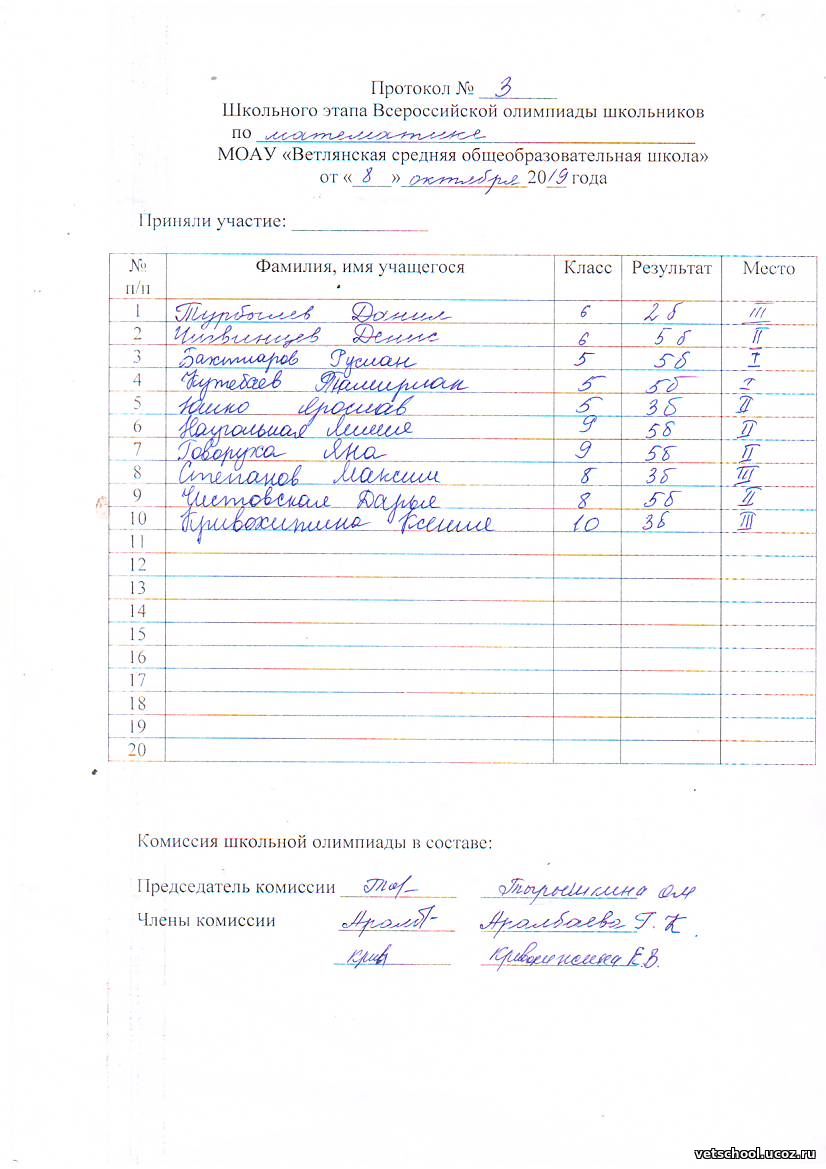 Протокол № 3
Школьного этапа Всероссийской олимпиады школьников
по математике
МОАУ «Ветлянская средняя общеобразовательная школа»
от « 8 » октября 2019 года
Приняли участие:
№ п/п Фамилия, имя учащегося Класс Результат Место
1 Данил 6 2 б III
2 Чигвинцев Денис 6 5 б II
3 Бахтиаров Руслан 5 5б I
4 Кутебаев Тамирлан 5 5б I
5 Ярослав 5 3б II
6 Наугольная 9 5б II
7 Говоруха Яна 9 5б II
8 Степанов Максим 8 3б III
9 Чистовская Дарья 8 5б II
10 Кривохижина Ксения 10 3б III
11
12
13
14
15
16
17
18
19
20
Комиссия школьной олимпиады в составе:
Председатель комиссии Тырышкина ОМ
Члены комиссии Аралбаева Г. К.
Кривохижина Е.В.
vetschool.ucoz.ru